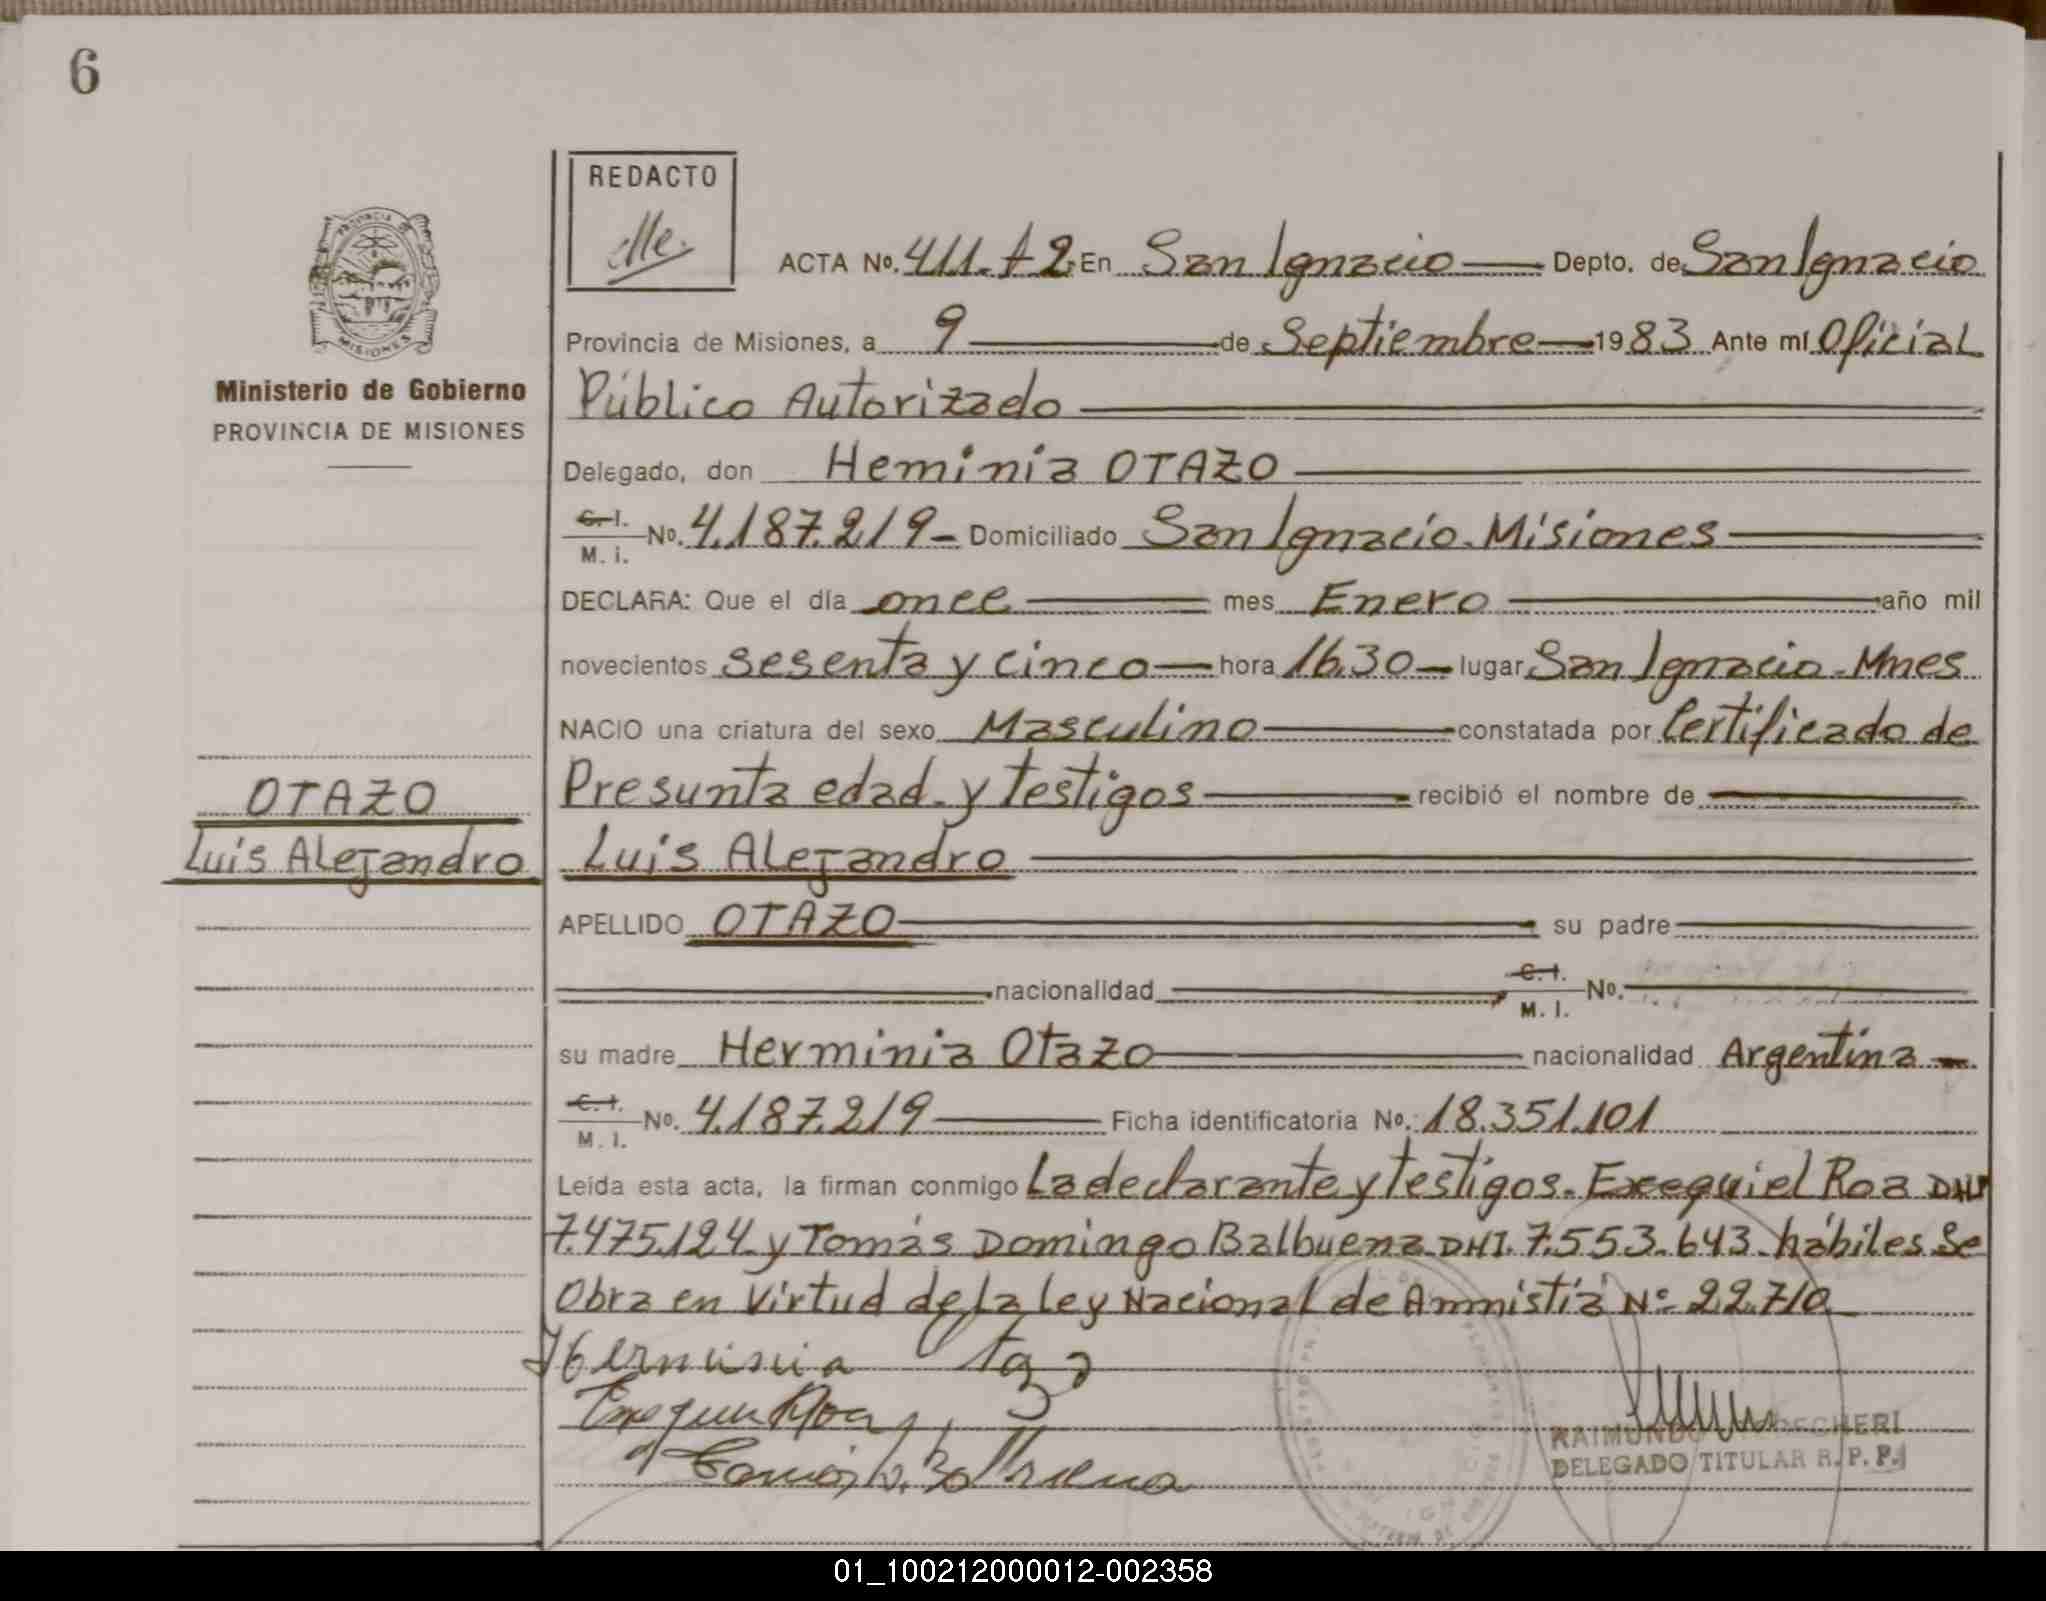 6
REDACTO
ACTA No. 411. t 2. En San Ignacio Depto. de San Ignacio
Provincia de Misiones, a 9 de Septiembre 1983 Ante mí Oficial
MISIONES
Ministerio de Gobierno
PROVINCIA DE MISIONES
Público Autorizado
Delegado, don Heminia OTAZO
C. I. M. I. No. 4.187.219 Domiciliado San Ignacio. Misiones
DECLARA: Que el día once mes Enero año mil
novecientos sesenta y cinco hora 16.30 lugar San Ignacio. Mnes
NACIO una criatura del sexo Masculino constatada por Certificado de
OTAZO
Presunta edad. y testigos recibió el nombre de
Luis Alejandro
Luis Alejandro
APELLIDO OTAZO su padre
nacionalidad C. I. M. I. No.
su madre Herminia Otazo nacionalidad Argentina
C. I. M. I. No. 4.187.219 Ficha identificatoria No. 18.351.101
Leída esta acta, la firman conmigo La declarante y testigos. Exequiel Roa DNI
7.475.124 y Tomás Domingo Balbuena DNI. 7.553.643. hábiles. Se
Obra en Virtud de la Ley Nacional de Amnistía Nº 22.710
Herminia
RAIMUNDO
DELEGADO TITULAR R. P. P.
01_100212000012-002358